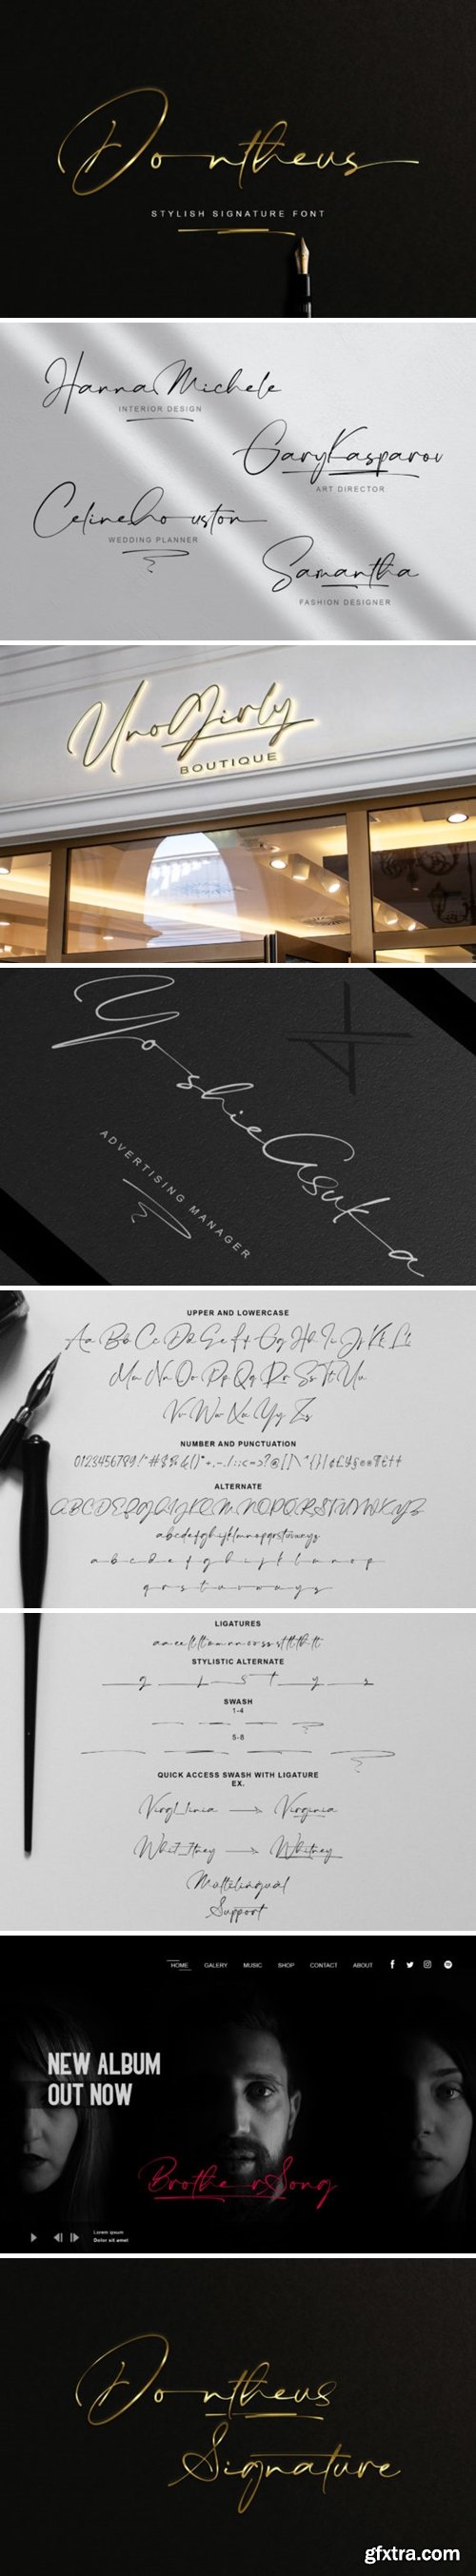 Dontheus
STYLISH SIGNATURE FONT
Hanna Michele
INTERIOR DESIGN
GaryKasparov
ART DIRECTOR
Celinehouston
WEDDING PLANNER
Samantha
FASHION DESIGNER
UnoGirly
BOUTIQUE
YoshieAsuka
ADVERTISING MANAGER
UPPER AND LOWERCASE
Aa Bb Cc Dd Ee Ff Gg Hh Ii Jj Kk Ll
Mm Nn Oo Pp Qq Rr Ss Tt Uu
Vv Ww Xx Yy Zz
NUMBER AND PUNCTUATION
0123456789
ALTERNATE
ABCDEFGHIJKLMNOPQRSTUVWXYZ
abcdefghijklmnopqrstuvwxyz
a b c d e f g h i j k l m n o p
q r s t u v w x y z
LIGATURES
STYLISTIC ALTERNATE
SWASH
1-4
5-8
QUICK ACCESS SWASH WITH LIGATURE
EX.
Virgi_1inia Virginia
Whit_7tney Whitney
Multilingual
Support
HOME GALERY MUSIC SHOP CONTACT ABOUT
NEW ALBUM
OUT NOW
BrotherSong
Lorem ipsum
Dolor sit amet
Dontheus
Signature
gfxtra.com